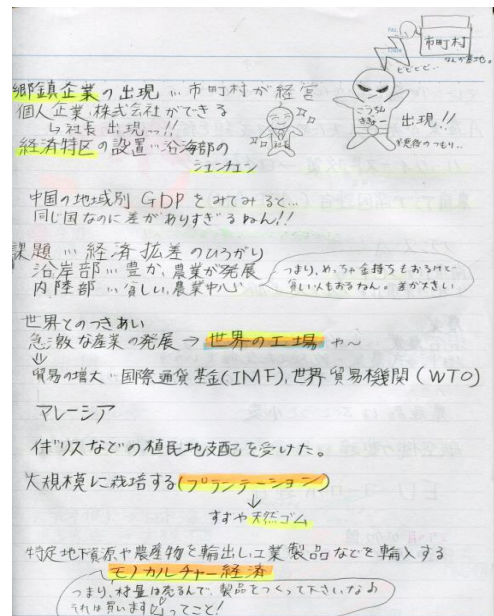 市町村
なんか基地。
ビビビビ…
郷鎮企業の出現…市町村が経営
個人企業、株式会社ができる
↳社長出現…!!
ごうちん
きぎょー
出現!!
経済特区の設置…沿海部の
シェンチェン
中国の地域別GDPをみてみると…
同じ国なのに差がありすぎるねん!!
課題…経済拡差のひろがり
沿岸部…豊か、農業が発展
内陸部…貧しい、農業中心
つまり、めっちゃ金持ちもおるけど
貧しい人もおるねん。差が大きい
世界とのつきあい
急激な産業の発展→世界の工場や〜
↓
貿易の増大…国際通貨基金(IMF),世界貿易機関(WTO)
マレーシア
イギリスなどの植民地支配を受けた。
大規模に栽培する(プランテーション)
↓
すずや天然ゴム
特定地下資源や農産物を輸出し工業製品などを輸入する
モノカルチャー経済
つまり、材量は売るんで、製品をつくって下さいなぁ
うれは買います ってこと!